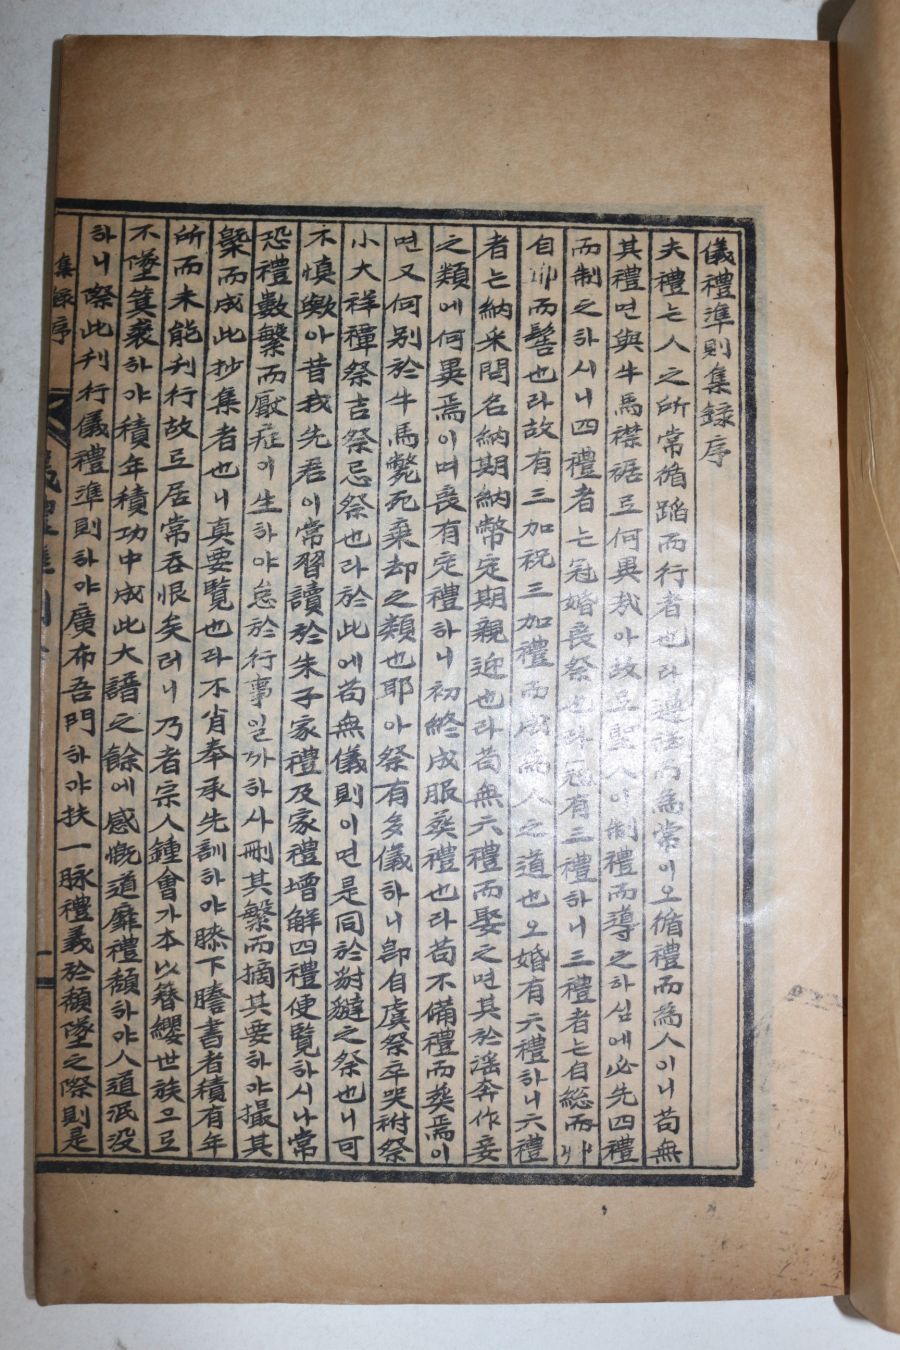 儀禮準則集錄序
夫禮는人之所常循蹈而行者也라遵禮而爲常이오循禮而爲人이니苟無
其禮면與牛馬襟裾로何異哉아故로聖人이制禮而導之하심에必先四禮
而制之하시니四禮者는冠婚喪祭也라冠有三禮하니三禮者는自總而丱
自丱而髻也라故有三加祝三加禮而成爲人之道也오婚有六禮하니六禮
者는納采問名納期納幣定期親迎也라苟無六禮而娶之면其於淫奔作妾
之類에何異焉이며喪有定禮하니初終成服葬禮也라苟不備禮而葬焉이
면又何別於牛馬斃死棄却之類也耶아祭有多儀하니卽自虞祭卒哭祔祭
小大祥禫祭吉祭忌祭也라於此에苟無儀則이면是同於豺獺之祭也니可
不愼歟아昔我先君이常習讀於朱子家禮及家禮增解四禮便覽하시나常
恐禮數繁而厭症이生하야怠於行事일까하사刪其繁而摘其要하야撮其
槩而成此抄集者也니眞要覽也라不肖奉承先訓하야膝下謄書者積有年
所而未能刋行故로居常呑恨矣러니乃者宗人鍾會가本以簪纓世族으로
不墜箕裘하야積年積功中成此大譜之餘에感慨道靡禮頹하야人道泯沒
하니際此刋行儀禮準則하야廣布吾門하야扶一脉禮義於頹墜之際則是
集錄序
一